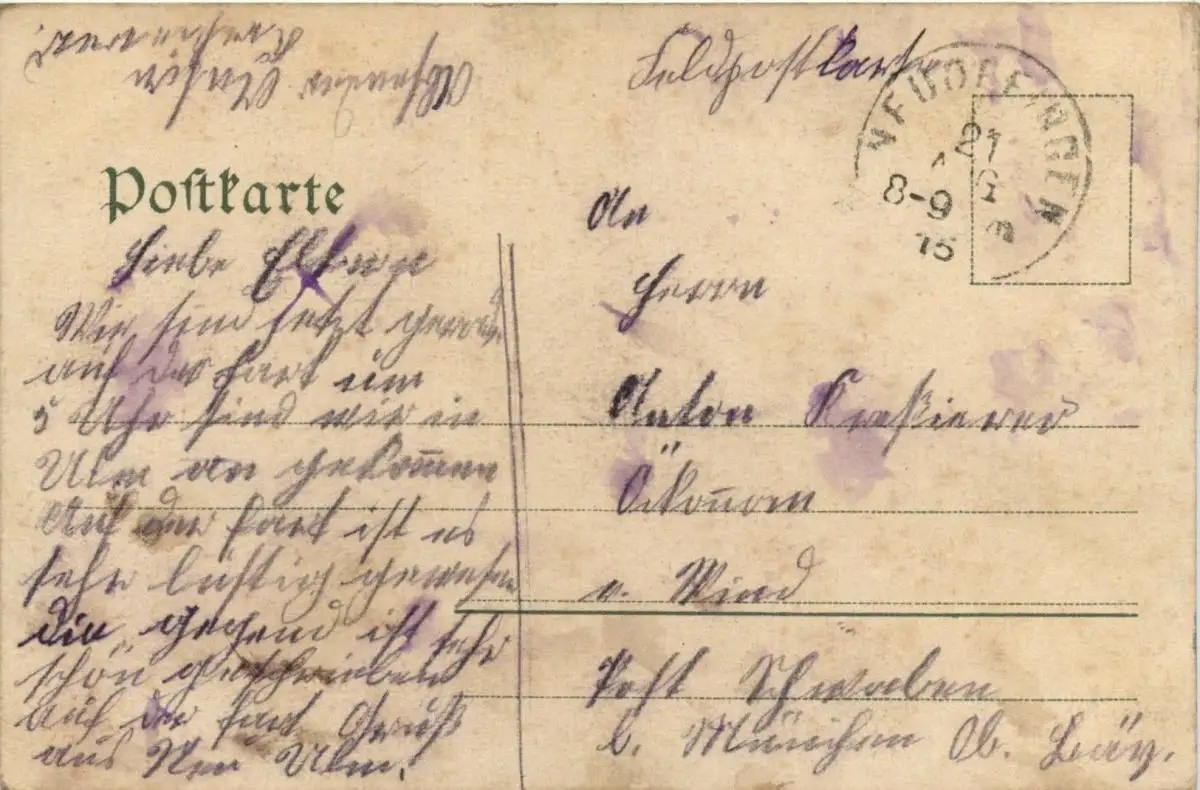 Feldpostkarte
Absender
Postkarte
NEUOFFINGEN
21
8-9
15
Liebe Eltern
Wir sind jetzt gerade
auf der fart um
5 Uhr sind wir in
Ulm an gekommen
Auf der fart ist es
sehr lustig gewesen
die gegend ist sehr
schön geschrieben
auf der fart Gruß
aus Neu Ulm.
An
Herrn
Anton
Ökonom
v. Wind
Post Schwaben
b. München Ob. Bay.